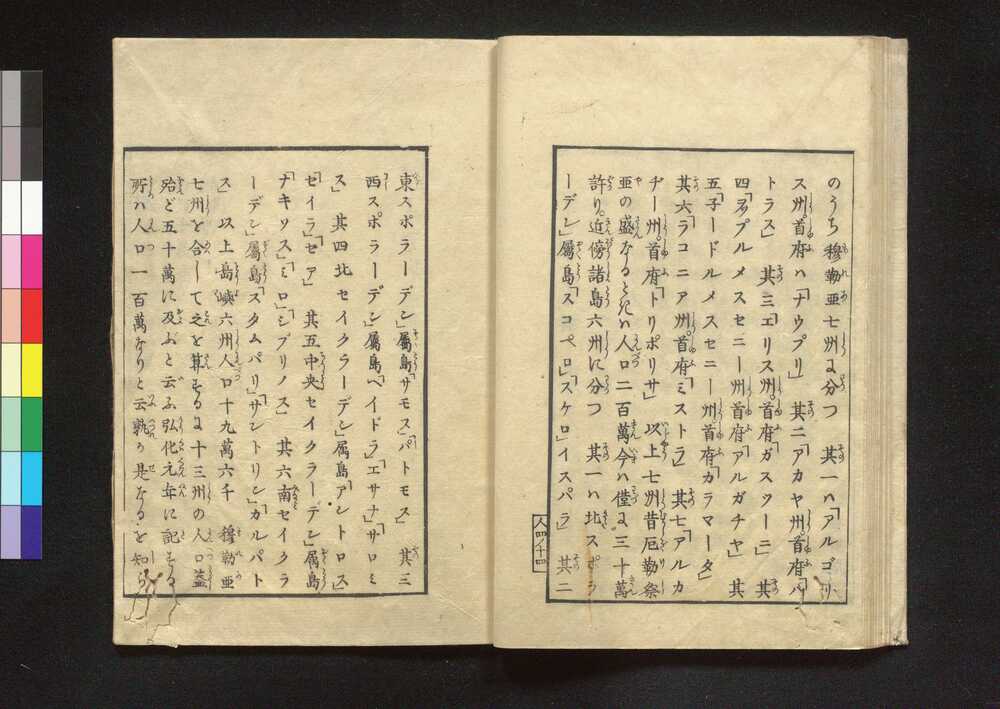 のうち穆勒亜七州に分つ　其一ハ「アルゴリ
ス州首府ハ「ナウプリ」　其二「アカヤ州首府「パ
トラス」　其三「エリス州首府「ガスツーニ」　其
四「ヲプルメスセニー州首府「アルガチヤ」　其
五「子ードルメスセニー州首府「カラマータ」
其六「ラコニア州首府「ミストラ」　其七「アルカ
ヂー州首府「トリポリサ」　以上七洲昔厄勒祭
亜の盛なるときハ人口二百萬今ハ僅に三十萬
許り近傍諸島六州に分つ　其一ハ北スポラ
ーデン」屬島「スコペロ」「スケロ」イスパラ」　其二
人四ノ十四
東スポラーデン」屬島「サモス」「パトモス」　其三
西スポラーデン」屬島「ヘイドラ」「エサナ」「サロミ
ス」　其四北セイクラーデン」属島「アントロス」
「セイラ」「セア」　其五中央セイクラーデン」屬島
「ナキソス」「ミロ」「シブリノス」　其六南セイクラ
ーデン」屬島「スタムパリ」「サントリン」「カルパト
ス」　以上島嶼六州人口十九萬六千　穆勒亜
七州を合して之を算するに十三州の人口蓋
殆ど五十萬に及ぶと云ふ弘化元年に記する
所ハ人口一百萬なりと云孰か是なるを知ら